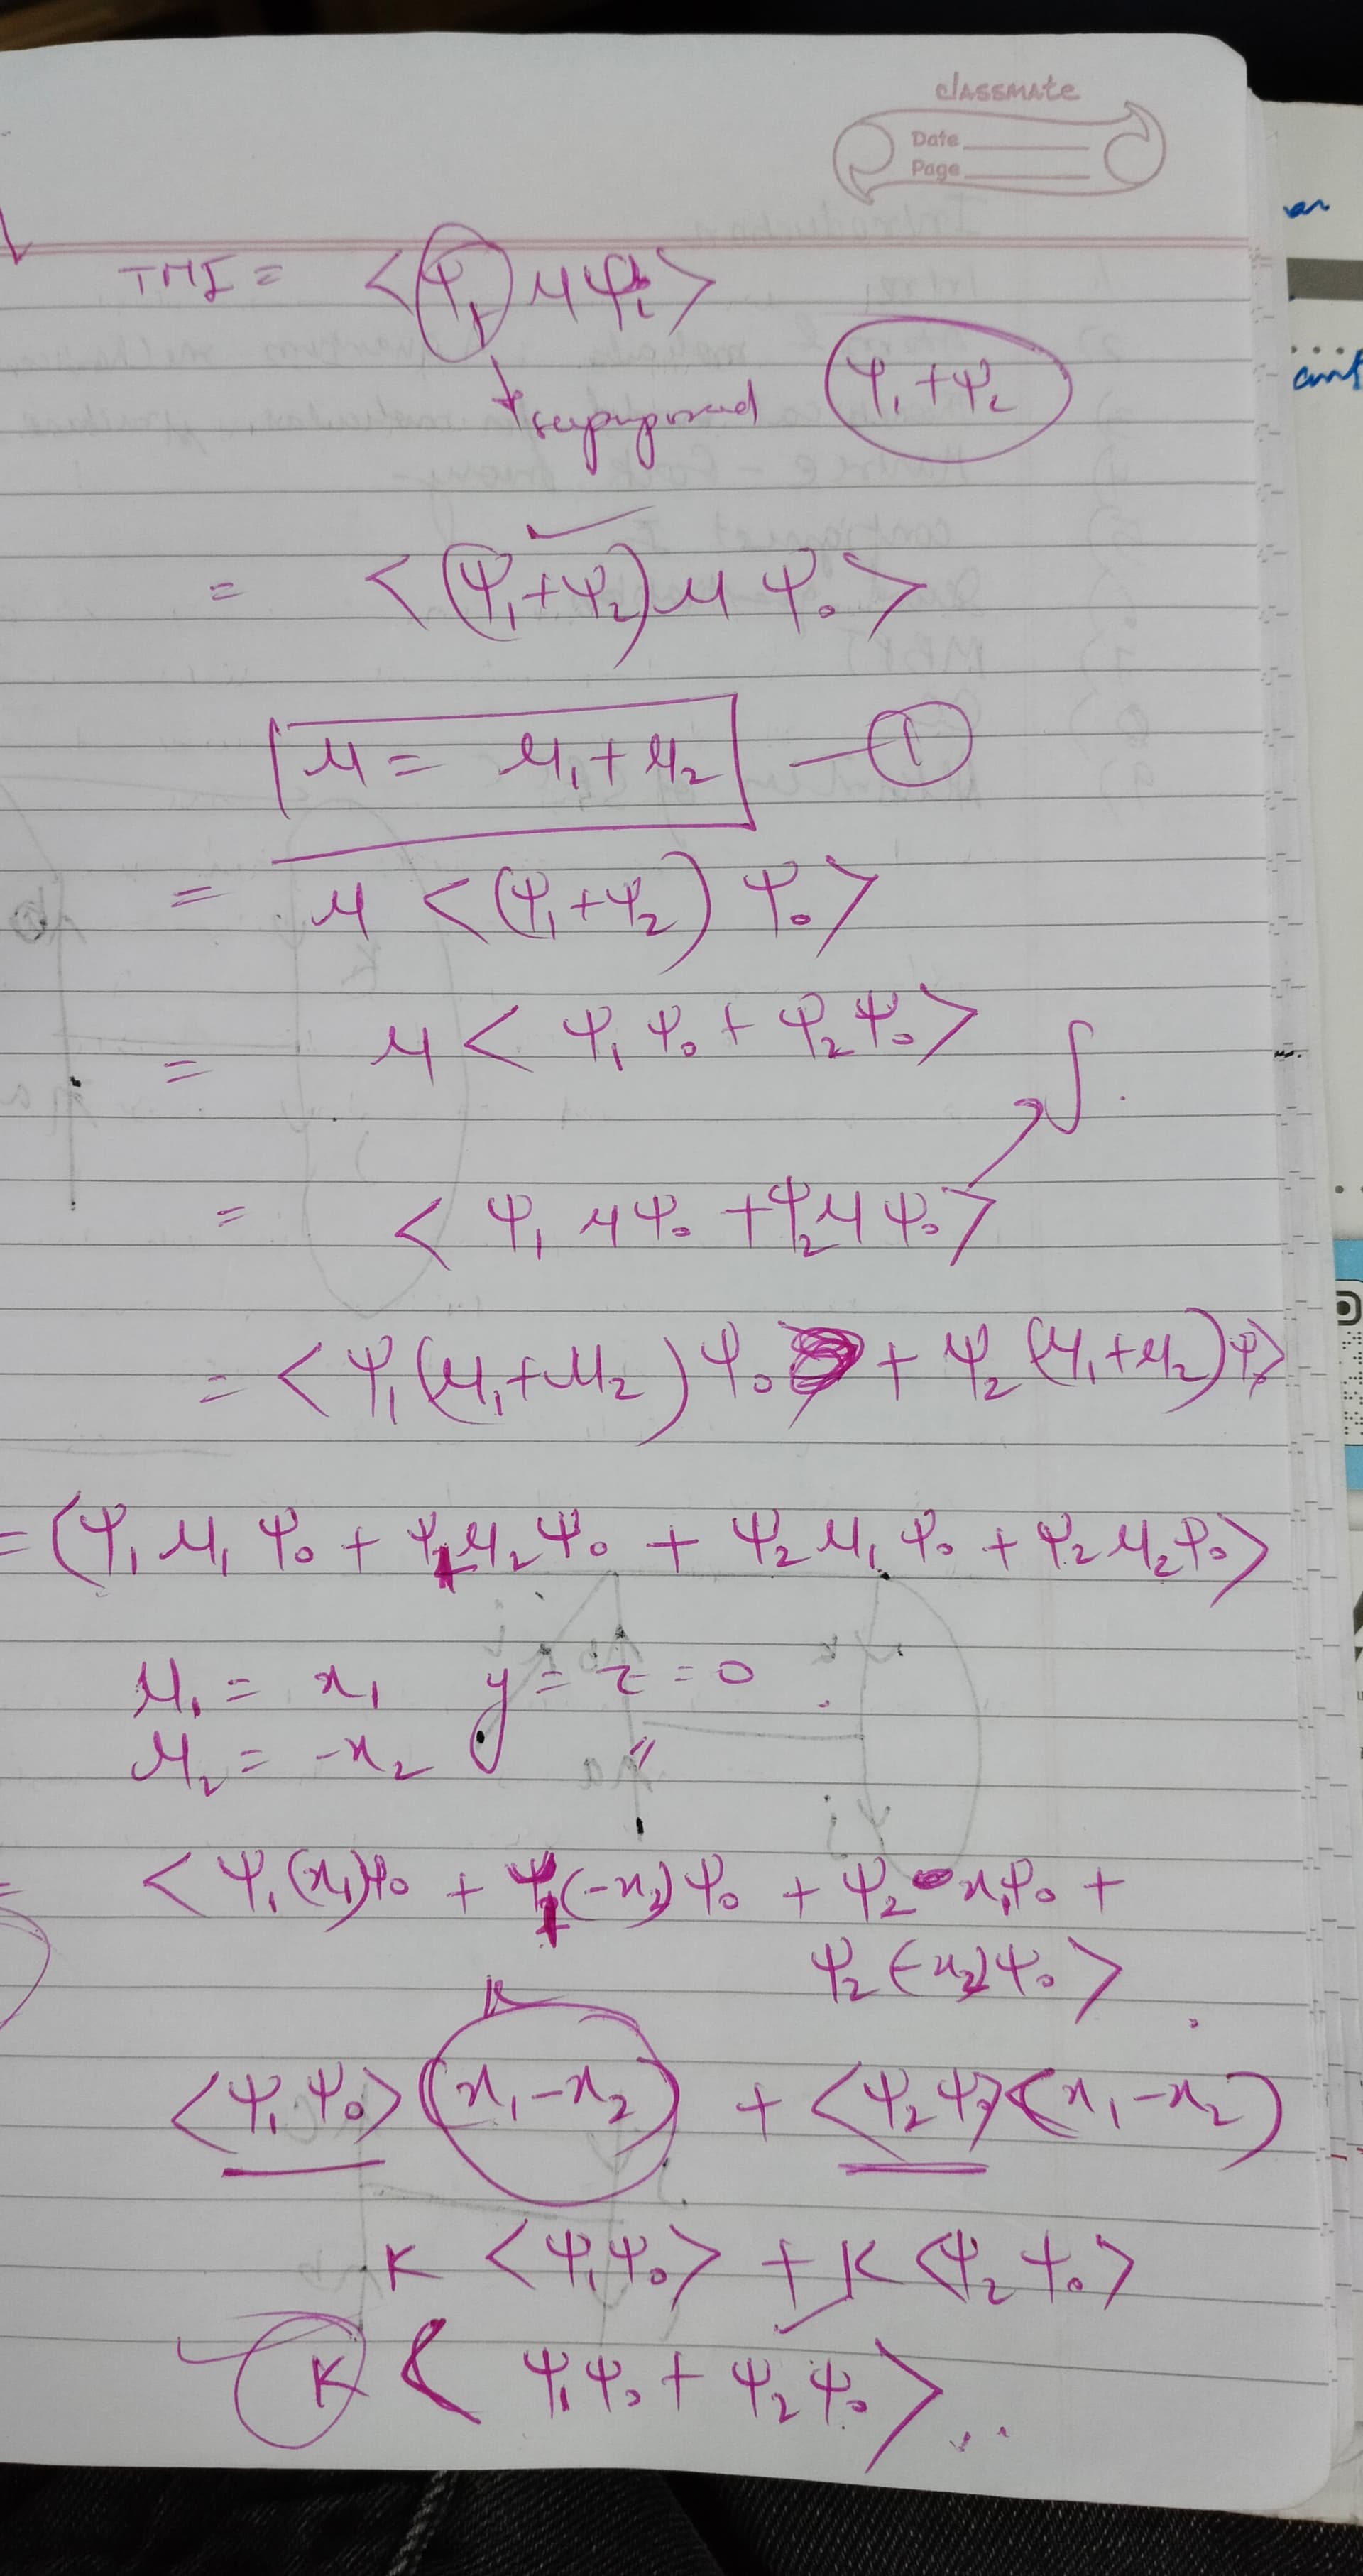 classmate
Date
Page
TMI = <Ψf μ Ψi>
superposed Ψ1+Ψ2
= <(Ψ1+Ψ2) μ Ψ0>
μ = μ1+μ2 — ①
= μ <(Ψ1+Ψ2) Ψ0>
= μ < Ψ1 Ψ0 + Ψ2 Ψ0>
∫
= < Ψ1 μ Ψ0 + Ψ2 μ Ψ0>
= <Ψ1 (μ1+μ2) Ψ0 + Ψ2 (μ1+μ2) Ψ0>
= (Ψ1 μ1 Ψ0 + Ψ1 μ2 Ψ0 + Ψ2 μ1 Ψ0 + Ψ2 μ2 Ψ0>
μ1 = x1 y = z = 0
μ2 = -x2 "
= < Ψ1 (x1) Ψ0 + Ψ1 (-x2) Ψ0 + Ψ2 x1 Ψ0 +
Ψ2 (-x2) Ψ0 >
K
<Ψ1 Ψ0> (x1-x2) + <Ψ2 Ψ0> (x1-x2)
K <Ψ1 Ψ0> + K <Ψ2 Ψ0>
K < Ψ1 Ψ0 + Ψ2 Ψ0 >